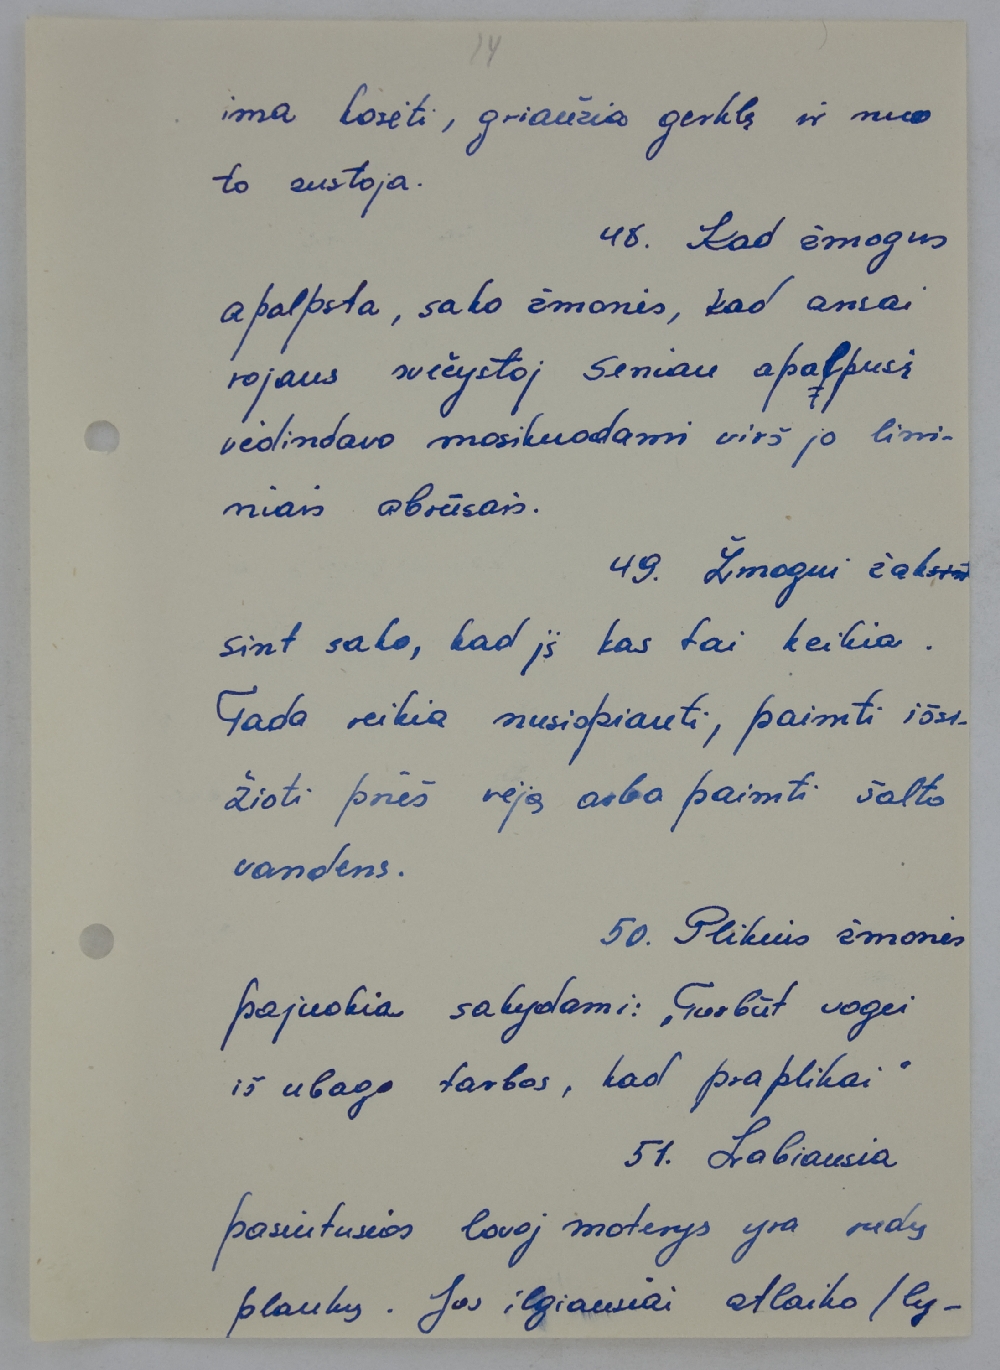 14
ima kosėti, griaužia gerklę ir nuo
to sustoja.
48. Kad žmogus
apalpsta, sako žmonės, kad ansai
rojaus svečystoj Seniau apalpusį
vėdindavo mosikuodami virš jo lini-
niais abrūsais.
49. Žmogui žak
sint sako, kad jį kas tai keikia.
Tada reikia nusispiauti, paimti išsi-
žioti prieš vėją arba paimti šalto
vandens.
50. Plikuis žmonės
pajuokia sakydami: „Turbūt vogei
iš ubago tarbos, kad praplikai“
51. Labiausia
pasiutusios lovoj moterys yra rudų
plaukų. Jos ilgiausiai atlaiko /ly-